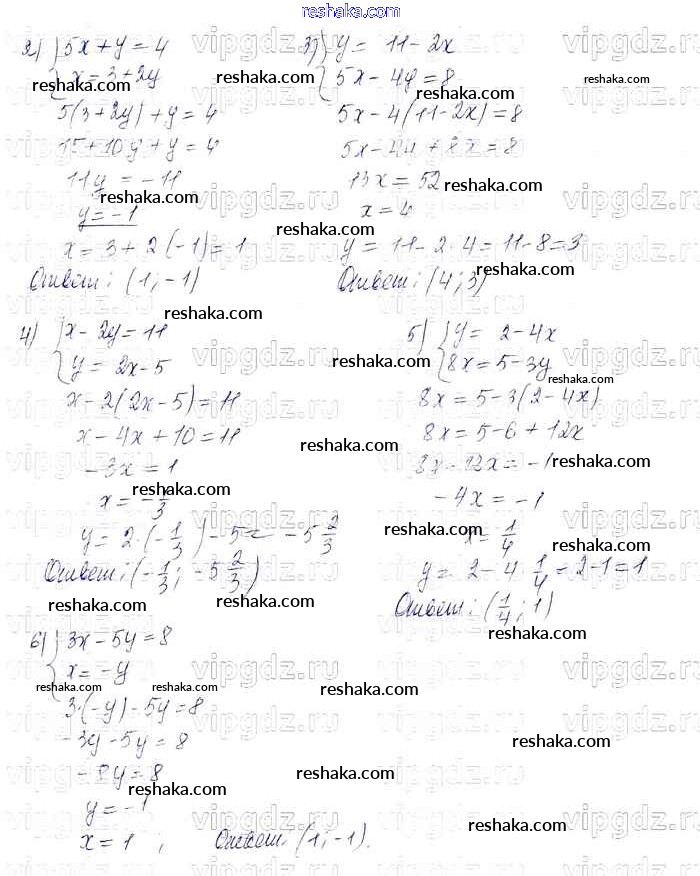 reshaka.com
2) { 5x + y = 4
x = 3 + 2y
5(3 + 2y) + y = 4
15 + 10y + y = 4
11y = -11
y = -1
x = 3 + 2·(-1) = 1
Ответ: (1; -1)
3) { y = 11 - 2x
5x - 4y = 8
5x - 4(11 - 2x) = 8
5x - 44 + 8x = 8
13x = 52
x = 4
y = 11 - 2·4 = 11 - 8 = 3
Ответ: (4; 3)
4) { x - 2y = 11
y = 2x - 5
x - 2(2x - 5) = 11
x - 4x + 10 = 11
-3x = 1
x = -1/3
y = 2·(-1/3) - 5 = -5 2/3
Ответ: (-1/3; -5 2/3)
5) { y = 2 - 4x
8x = 5 - 3y
8x = 5 - 3(2 - 4x)
8x = 5 - 6 + 12x
8x - 12x = -1
-4x = -1
x = 1/4
y = 2 - 4·1/4 = 2 - 1 = 1
Ответ: (1/4; 1)
6) { 3x - 5y = 8
x = -y
3·(-y) - 5y = 8
-3y - 5y = 8
-8y = 8
y = -1
x = 1; Ответ: (1; -1).
vipgdz.ru